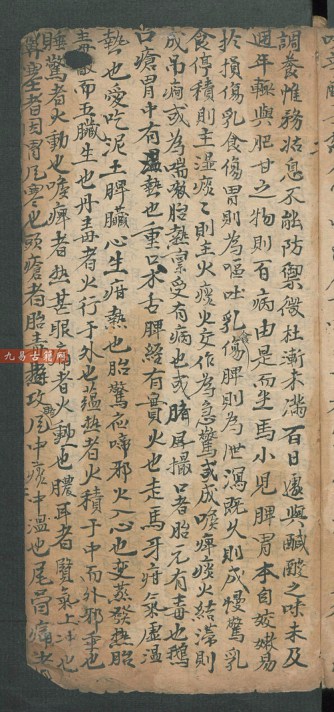 調養惟務姑息不能防禦微杜漸未滿百日遽與鹹酸之味未及
週年輒與肥甘之物則百病由是而生焉小兒脾胃本自姣嫩易
於損傷乳食傷胃則為嘔吐乳傷脾則為泄瀉既久則成慢驚乳
食停積則主湿痰〻則主火痰火交作為急驚或成喉痺痰火結滯則
成吊癇或為喘嗽胎熱稟受有病也或臍風撮口者胎元有毒也鵝
口瘡胃中有熱也重口木舌脾經有實火也走馬牙疳氣虛湿
熱也愛吃泥土脾臟心生疳熱也胎驚夜啼邪火入心也变蒸發熱胎
毒散而五臟生也丹毒者火行于外也蘊热者火積于中而外邪乘也
睡驚者火動也喉痺者热甚眼者火動也膿耳者腎氣上冲也
塞者因胃風寒也頭瘡者胎毒攻風中痰中温也尾骨痛
九易古籍网